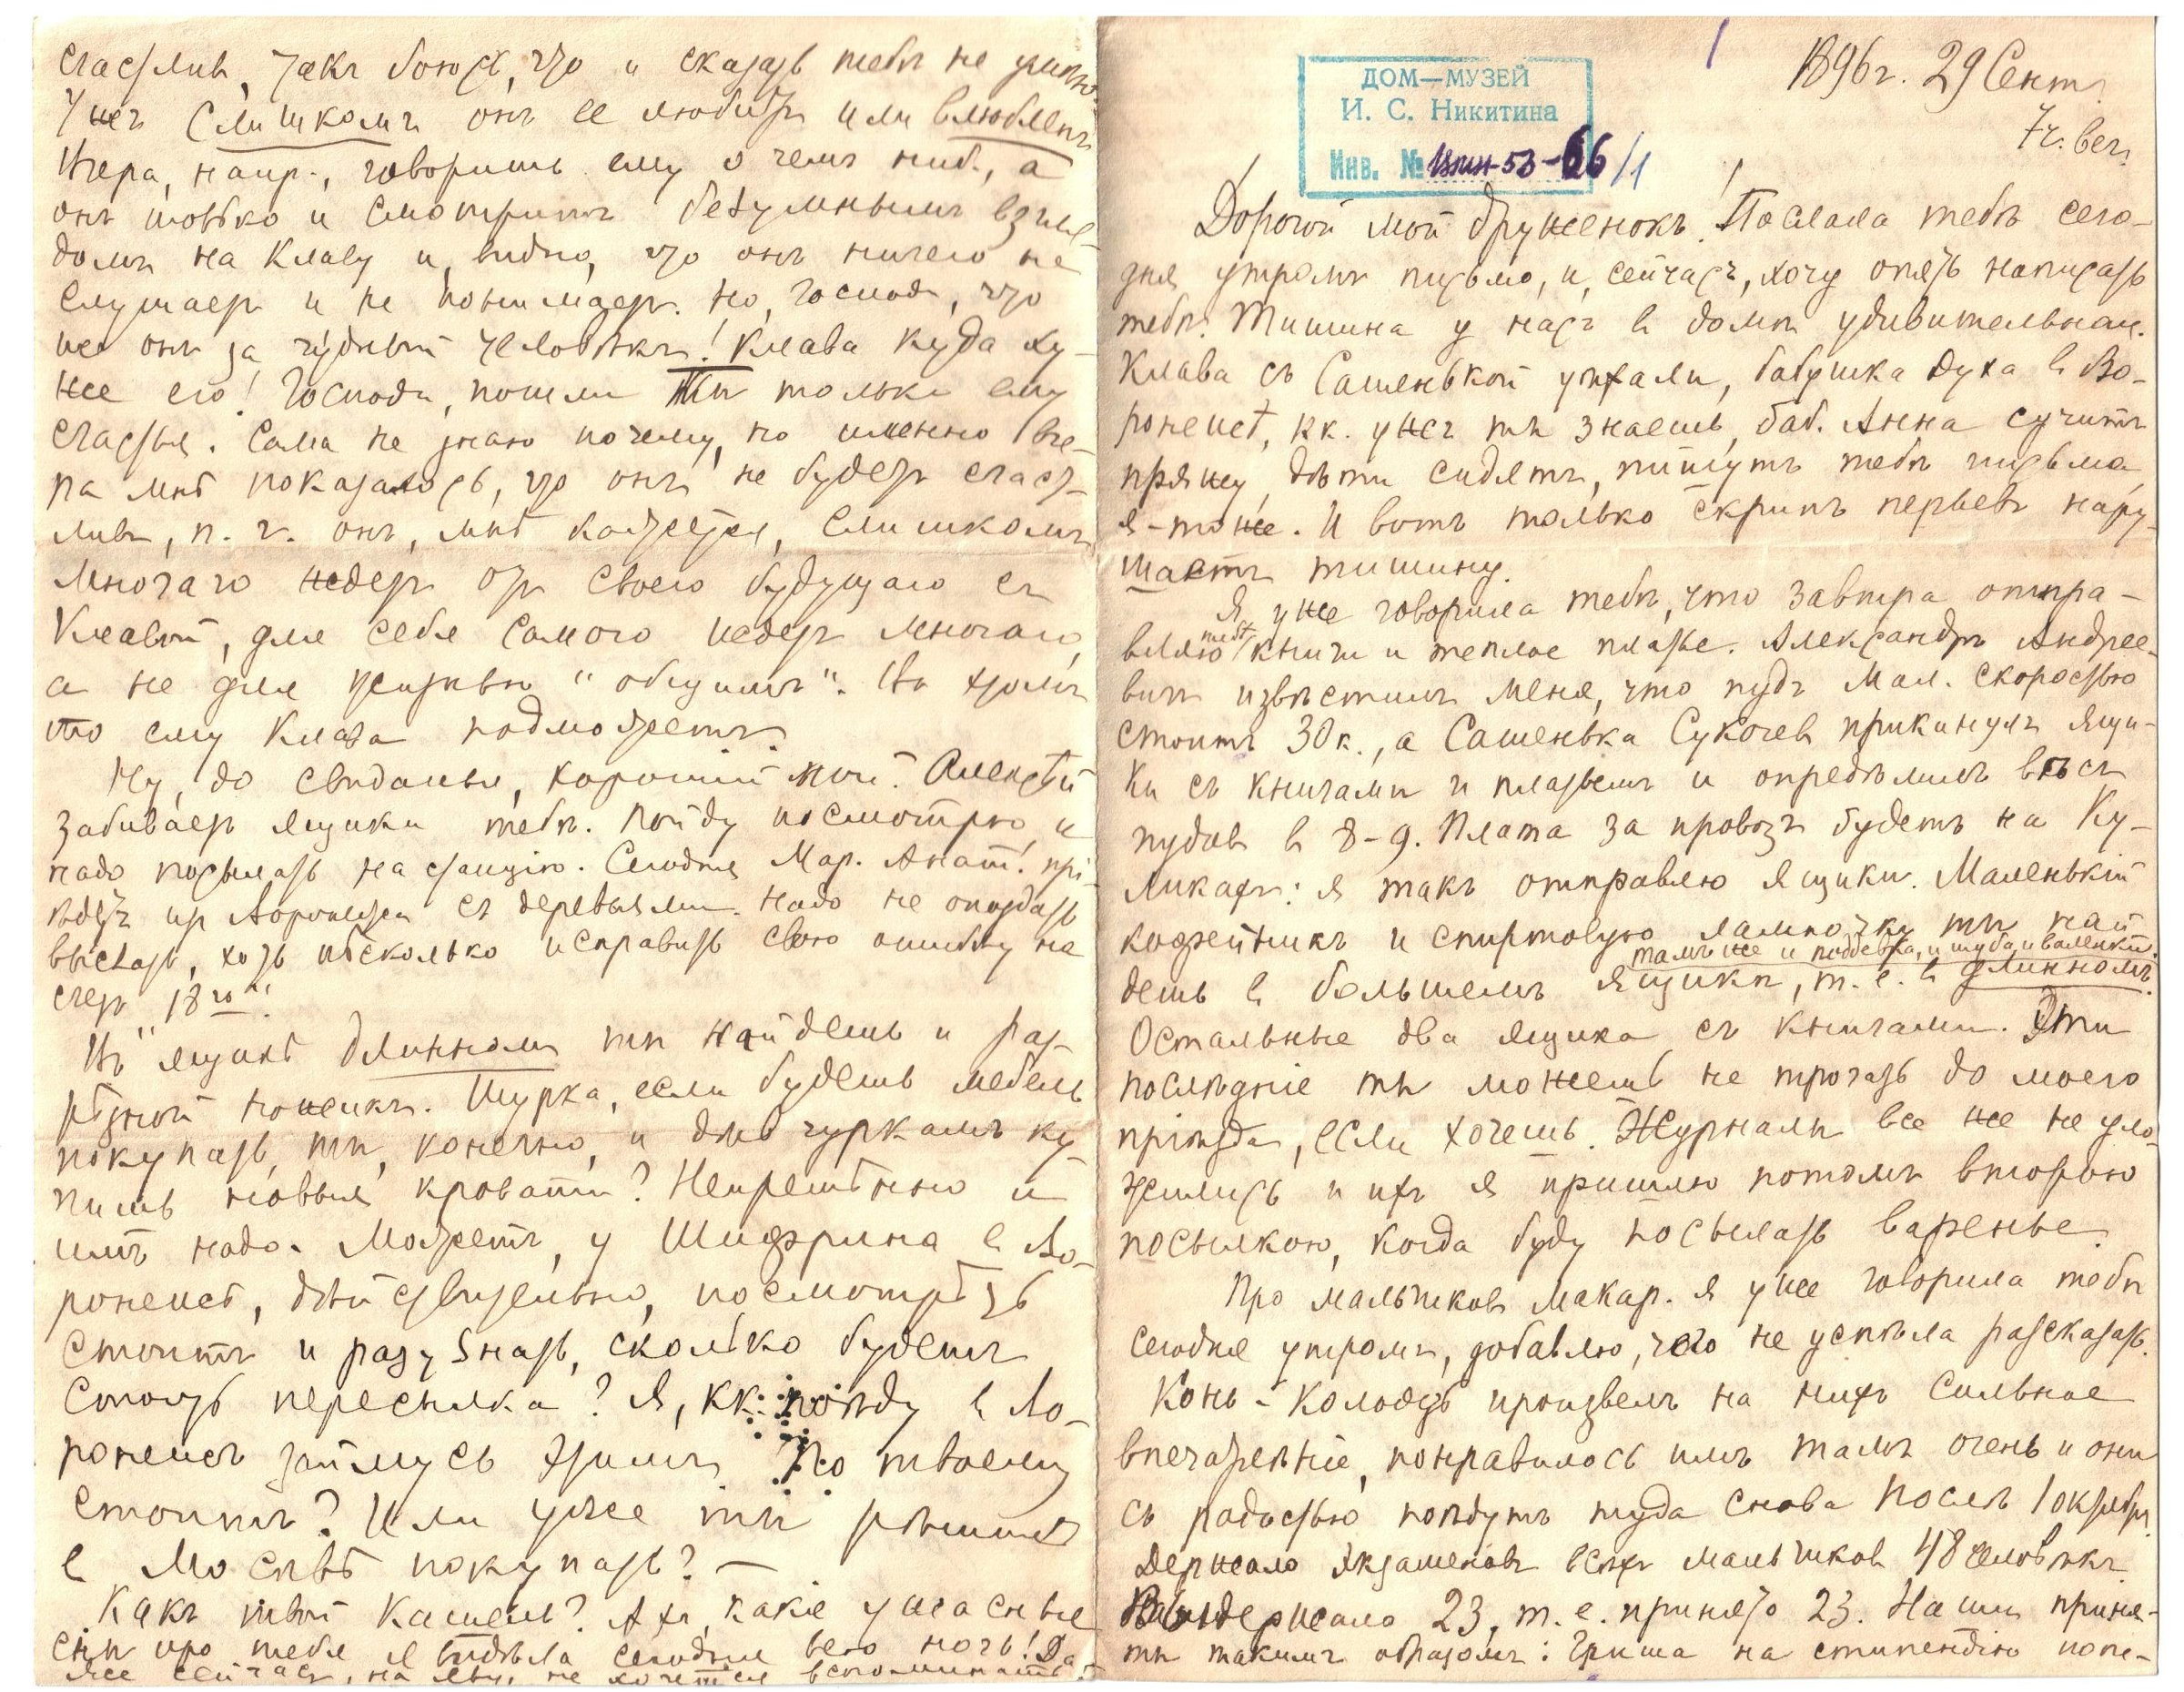 1896 г. 29 Сент.
7 ч. веч.
ДОМ—МУЗЕЙ
И. С. Никитина
Инв. № 53-66/1
Дорогой мой друженокъ! Послала тебѣ сего-
дня утромъ письмо, и, сейчасъ, хочу опять написать
тебѣ. Тишина у насъ въ домѣ удивительная.
Клава съ Сашенькой уѣхали, бабушка Духа в Во-
ронежѣ, кк. ужъ ты знаешь, баб. Анна сучитъ
пряжу, дѣти сидятъ, пишутъ тебѣ письма,
я-тоже. И вотъ только скрипъ перьевъ нару-
шаетъ тишину.
Я уже говорила тебѣ, что завтра отпра-
вляю тебѣ книги и теплое платье. Александръ Андрее-
вичъ извѣстилъ меня, что пудъ мал. скоростью
стоитъ 30 к., а Сашенька Сукочев прикинулъ ящи-
ки съ книгами и платьемъ и опредѣлилъ вѣсъ
пудовъ в 8-9. Плата за провозъ будетъ на Ку-
ликахъ: я такъ отправлю ящики. Маленькій
кофейникъ и спиртовую лампочку ты най-
дешь в большемъ ящикѣ, т. е. в длинномъ.
тамъ же и поддевка, и шуба, и валенки.
Остальные два ящика съ книгами. Эти
послѣдніе ты можешь не трогать до моего
пріѣзда, если хочешь. Журналы все же не уло-
жились и ихъ я пришлю потомъ второю
посылкою, когда буду посылать варенье.
Про мальчиков Макар. я уже говорила тебѣ
сегодня утромъ, добавлю, чего не успѣла разсказать.
Конь-Колодезь произвелъ на нихъ сильное
впечатлѣніе, понравилось имъ тамъ очень и они
съ радостью поѣдутъ туда снова послѣ 1 октября.
Держало экзаменов всѣхъ мальчиков 48 человѣкъ.
Выдержало 23, т. е. принято 23. Наши приня-
ты такимъ образомъ: Гриша на стипендію попе-
счастлив, такъ боюсь, что и сказать тебѣ не умѣю.
Ужъ слишкомъ онъ ее любитъ или влюбленъ
Вчера, напр., говоришь ему о чемъ ниб., а
онъ только и смотритъ безумнымъ взгля-
домъ на Клаву и, видно, что онъ ничего не
слушаетъ и не понимаетъ. Но, Господи, что
же онъ за чудный человѣкъ! Клава куда ху-
же его! Господи, пошли Ты только ему
счастья. Сама не знаю почему, но именно вче-
ра мнѣ показалось, что онъ не будетъ счаст-
ливъ, п. ч. онъ, мнѣ кажется, слишкомъ
многаго ждетъ отъ своего будущаго съ
Клавой, для себя самого ждетъ многаго,
а не для жизнью "общимъ". Въ этомъ
то ему Клава поможетъ.
Ну, до свиданья, хорошій мой. Алексѣй
забиваетъ ящики тебѣ. Пойду посмотрю, и
надо посылать на станцію. Сегодня Мар. Анат. прі-
ѣдетъ изъ Воронежа съ деревьями. Надо не опоздать
выслать, хоть нѣсколько исправить свою ошибку на
счетъ 18го.
Въ ящикѣ длинномъ ты найдешь и раз-
рѣзной ножикъ. Шурка, если будешь мебель
покупать, ты, конечно, и для чуркамъ ку-
пишь новыя кровати? Непремѣнно и
имъ надо. Можетъ, у Шифрина в Во-
ронежѣ, дѣйствительно, посмотрѣть
стоитъ и разузнать, сколько будетъ
стоить пересылка? Я, кк. поѣду в Во-
ронежъ займусь этимъ. По твоему
стоитъ? Или уже ты рѣшишь
в Москвѣ покупать? —
Какъ твой кашель? Ахъ, какіе ужасные
сны про тебя я видѣла сегодня всю ночь! Да-
же сейчасъ, на яву, не хочется вспоминать.